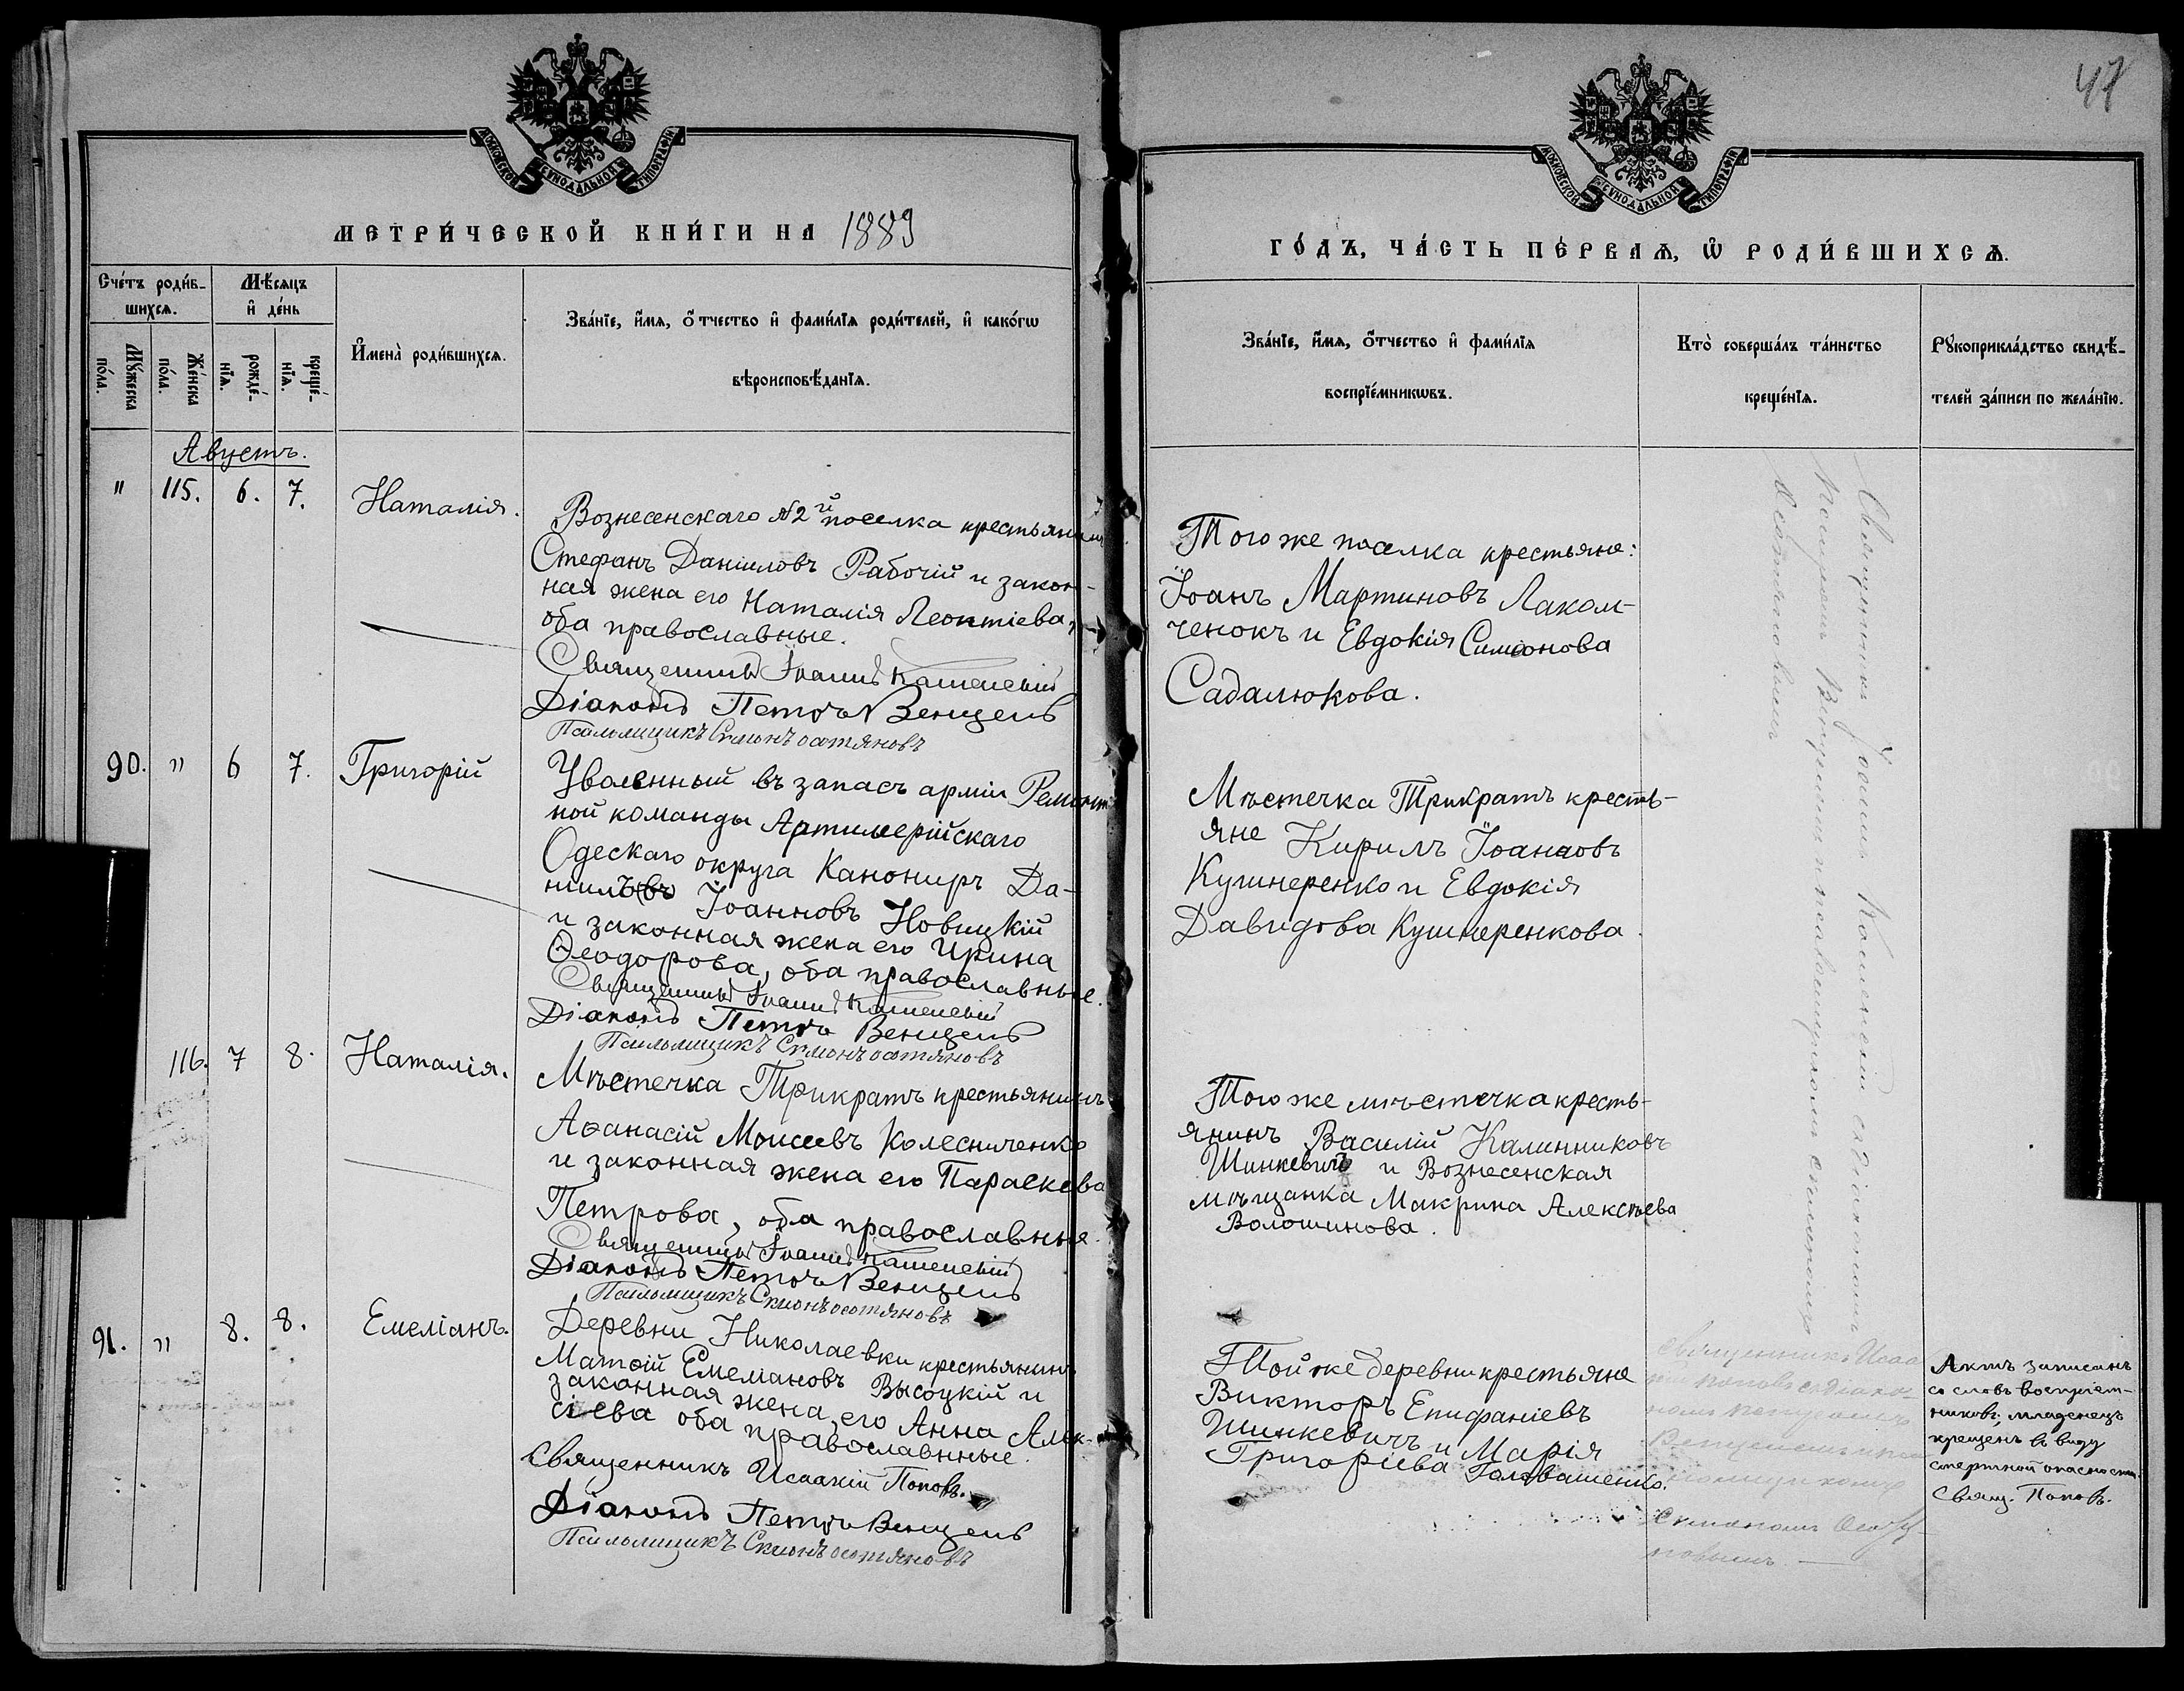 47
МОСКОВСКОЙ СѴНОДАЛЬНОЙ ТИПОГРАФІИ
МОСКОВСКОЙ СѴНОДАЛЬНОЙ ТИПОГРАФІИ
МЕТРИ́ЧЕСКОЙ КНИ́ГИ НА 1889
ГО́ДЪ, ЧА́СТЬ ПЕ́РВАѦ, Ѡ РОДИ́ВШИХСѦ.
Сче́тъ роди́в-
шихсѧ.
Мꙋ́жеска по́ла.
Же́нска по́ла.
Мѣ́сяцъ
и҆ де́нь
рожде́-нїѧ.
креще́-нїѧ.
И҆мена̀ роди́вшихсѧ.
Зва́нїе, и҆́мѧ, ѻ҆́тчество и҆ фами́лїѧ роди́телей, и҆ како́гѡ
вѣроисповѣ́данїѧ.
Зва́нїе, и҆́мѧ, ѻ҆́тчество и҆ фами́лїѧ
воспрїе́мникѡвъ.
Кто̀ соверша́лъ та́инство
креще́нїѧ.
Рꙋкоприкла́дство свидѣ́-
телей за́писи по жела́нїю.
Августъ.
" 115. 6. 7. Наталія.
Вознесенскаго №2й поселка крестьянинъ
Стефанъ Даніиловъ Рабочій и закон-
ная жена его Наталія Леонтіева,
оба православные.
Священникъ Іоаннъ Каменскій
Діаконъ Петръ Венцель
Псаломщикъ Симонъ Осотяновъ
Того же поселка крестьяне:
Іоанъ Мартиновъ Лаком-
ченокъ и Евдокія Симеонова
Садалюкова.
90. " 6 7. Григорій
Уволенный въ запасъ арміи Ремонт-
ной команды Артилерійскаго
Одескаго округа Канониръ Да-
ніилъ Іоанновъ Новицкій
и законная жена его Ирина
Ѳеодорова, оба православные.
Священникъ Іоаннъ Каменскій
Діаконъ Петръ Венцель
Псаломщикъ Симонъ Осотяновъ
Мѣстечка Трикратъ кресть-
яне Кирилъ Іоанновъ
Кушнеренко и Евдокія
Давидова Кушнеренкова.
116. 7 8. Наталія.
Мѣстечка Трикратъ крестьянинъ
Аѳанасій Моисеевъ Колесниченко
и законная жена его Параскева
Петрова, оба православные.
Священникъ Іоаннъ Каменскій
Діаконъ Петръ Венцель
Псаломщикъ Симонъ Осотяновъ
Того же мѣстечка кресть-
янинъ Василій Калинниковъ
Шинкевичъ и Вознесенская
мѣщанка Макрина Алексѣева
Волошинова.
Священникъ Іоаннъ Каменскій съ діакономъ
Петромъ Венцелемъ и псаломщикомъ Симеономъ
Осотяновымъ
91. " 8. 8. Емеліанъ.
Деревни Николаевки крестьянинъ
Матѳій Емеліановъ Высоцкій и
законная жена его Анна Алек-
сіева оба православнные.
Священникъ Исаакій Поповъ.
Діаконъ Петръ Венцель
Псаломщикъ Симонъ Осотяновъ
Той же деревни крестьяне
Викторъ Епифаніевъ
Шинкевичъ и Марія
Григоріева Головашенко.
Священникъ Исаа-
кій Поповъ съ діако-
номъ Петромъ
Венцелемъ и пса-
ломщикомъ
Симономъ Осотя-
новымъ.
Актъ записанъ
со словъ воспріем-
никовъ; младенецъ
крещенъ въ виду
смертной опасности.
Свящ. Поповъ.